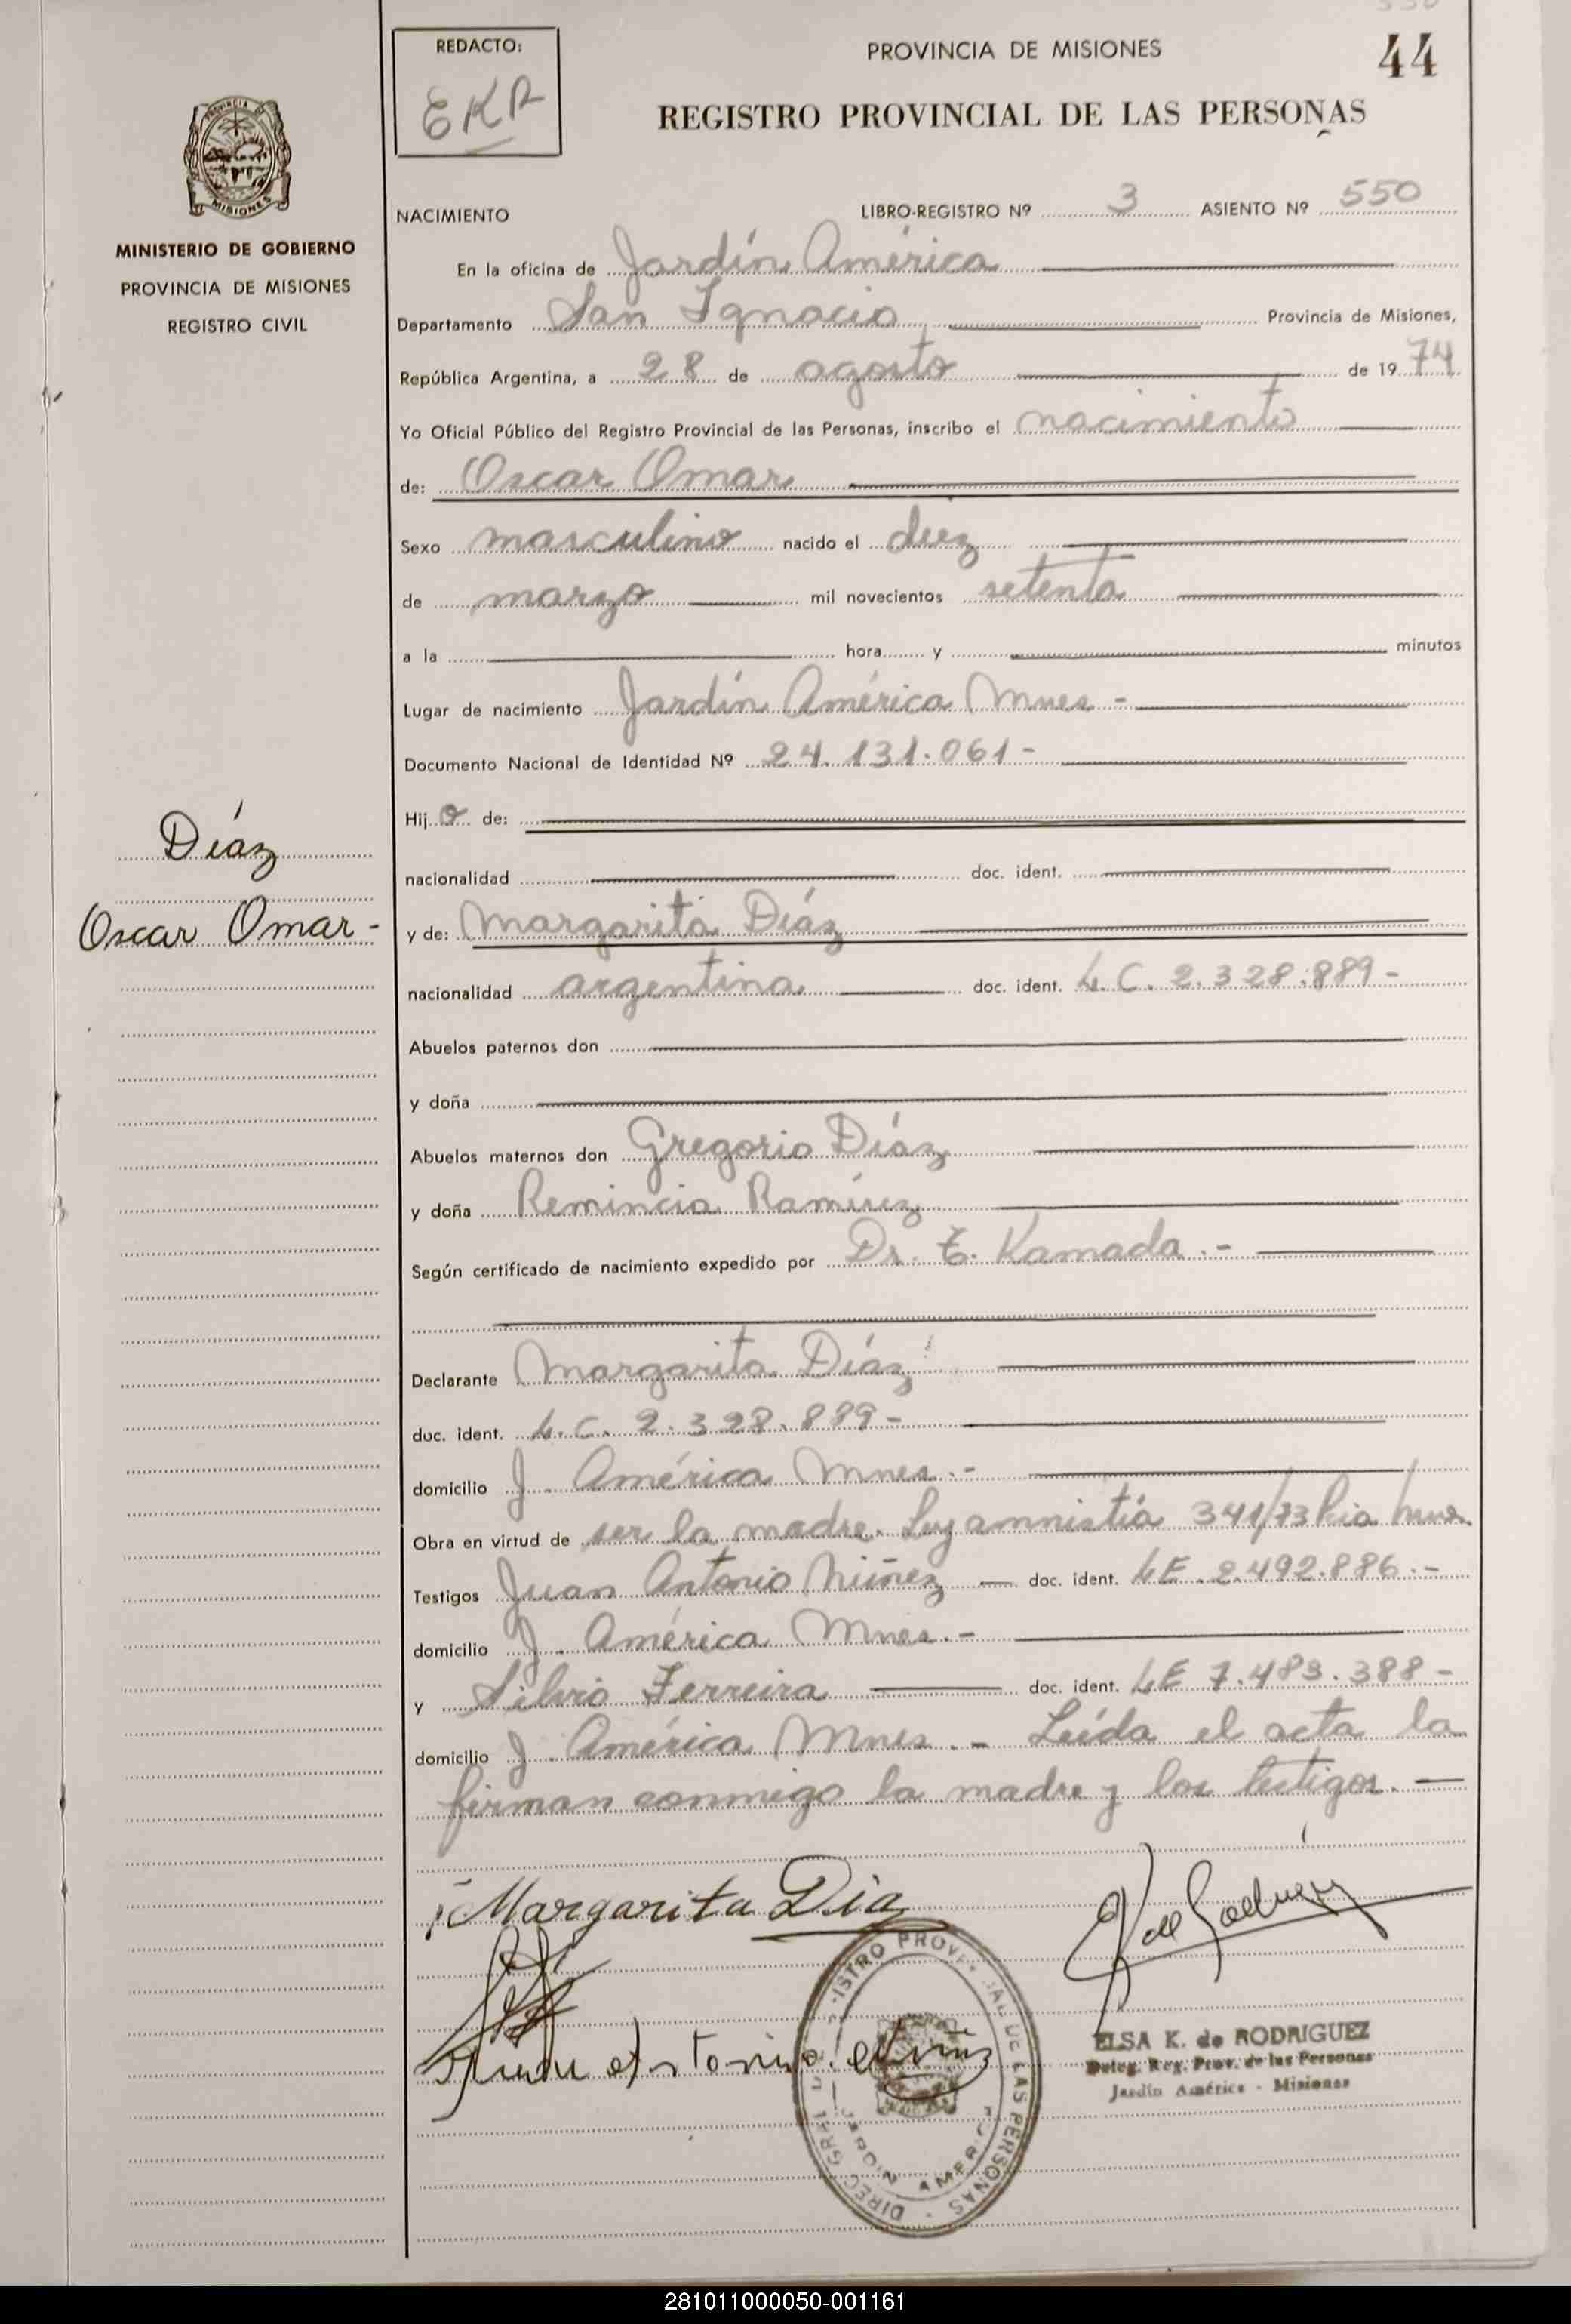 REDACTO:
EKR
PROVINCIA DE MISIONES
44
REGISTRO PROVINCIAL DE LAS PERSONAS
MISIONES
MINISTERIO DE GOBIERNO
PROVINCIA DE MISIONES
REGISTRO CIVIL
NACIMIENTO LIBRO-REGISTRO Nº 3 ASIENTO Nº 550
En la oficina de Jardín América
Departamento San Ignacio Provincia de Misiones,
República Argentina, a 28 de agosto de 1974
Yo Oficial Público del Registro Provincial de las Personas, inscribo el nacimiento
de: Oscar Omar
Sexo masculino nacido el diez
de marzo mil novecientos setenta
a la hora y minutos
Lugar de nacimiento Jardín América Mnes -
Documento Nacional de Identidad Nº 24.131.061-
Hijo de:
nacionalidad doc. ident.
Díaz
Oscar Omar-
y de: Margarita Díaz
nacionalidad argentina doc. ident. L.C. 2.328.889-
Abuelos paternos don
y doña
Abuelos maternos don Gregorio Díaz
y doña Remincia Ramírez
Según certificado de nacimiento expedido por Dr. T. Kamada.-
Declarante Margarita Díaz
doc. ident. L.C. 2.328.889-
domicilio J. América Mnes.-
Obra en virtud de ser la madre. Ley amnistía 341/73
Testigos Juan Antonio Núñez — doc. ident. LE. 2.492.886.-
domicilio J. América Mnes.-
y Silvio Ferreira doc. ident. LE 7.483.388-
domicilio J. América Mnes.- Leída el acta la
firman conmigo la madre y los testigos.—
Margarita Dia
ELSA K. de RODRIGUEZ
Deleg. Reg. Prov. de las Personas
Jardín América - Misiones
281011000050-001161